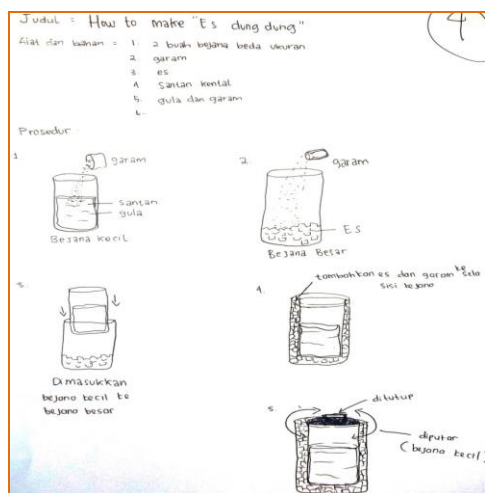 Judul : How to make "Es dung dung"
4
Alat dan bahan : 1. 2 buah bejana beda ukuran
2. garam
3. es
4. Santan kental
5. gula dan garam
6.
Prosedur
1.
garam
santan
gula
Bejana kecil
2.
garam
Es
Bejana Besar
3.
Dimasukkan
bejana kecil ke
bejana besar
4.
tambahkan es dan garam ke sela
sisi bejana
5.
ditutup
diputar
(bejana kecil)